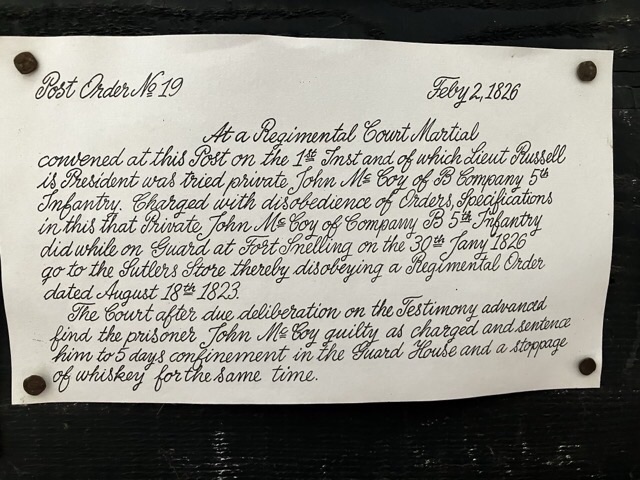 Post Order No 19 Feby 2, 1826
At a Regimental Court Martial
convened at this Post on the 1st Inst and of which Lieut Russell
is President was tried private John Mc Coy of B Company 5th
Infantry. Charged with disobedience of Orders, Specifications
in this that Private John Mc Coy of Company B 5th Infantry
did while on Guard at Fort Snelling on the 30th Jany 1826
go to the Sutlers Store thereby disobeying a Regimental Order
dated August 18th 1823.
The Court after due deliberation on the Testimony advanced
find the prisoner John Mc Coy guilty as charged and sentence
him to 5 days confinement in the Guard House and a stoppage
of whiskey for the same time.